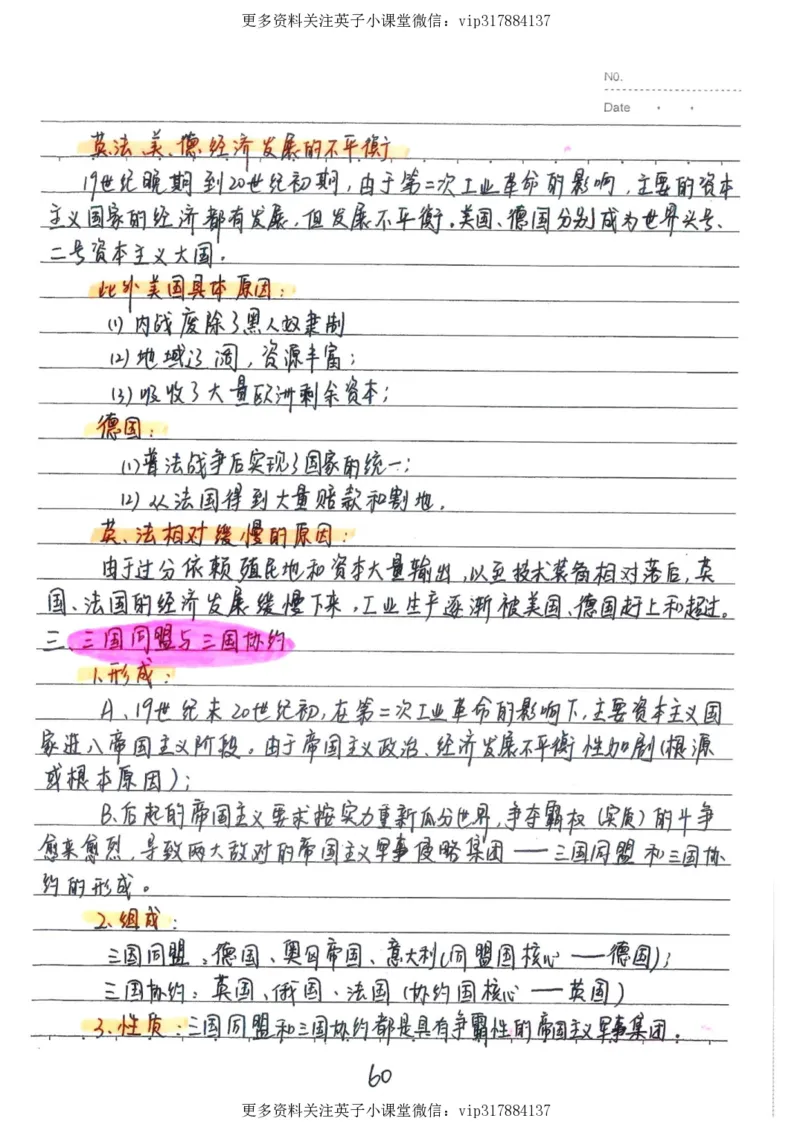 更多资料关注英子小课堂微信：vip317884137
No.
Date
英、法、美、德经济发展的不平衡
19世纪晚期到20世纪初期，由于第二次工业革命的影响，主要的资本
主义国家的经济都有发展，但发展不平衡。美国、德国分别成为世界头号、
二号资本主义大国。
此外美国具体原因：
(1) 内战废除了黑人奴隶制
(2) 地域辽阔，资源丰富；
(3) 吸收了大量欧洲剩余资本；
德国：
(1) 普法战争后实现了国家的统一；
(2) 从法国得到大量赔款和割地。
英、法相对缓慢的原因：
由于过分依赖殖民地和资本大量输出，以至技术装备相对落后，英
国、法国的经济发展缓慢下来，工业生产逐渐被美国、德国赶上和超过。
三、三国同盟与三国协约
1.形成：
A、19世纪末20世纪初，在第二次工业革命的影响下，主要资本主义国
家进入帝国主义阶段。由于帝国主义政治、经济发展不平衡性加剧（根源
或根本原因）；
B、后起的帝国主义要求按实力重新瓜分世界，争夺霸权（实质）的斗争
愈来愈烈，导致两大敌对的帝国主义军事侵略集团——三国同盟和三国协
约的形成。
2、组成：
三国同盟：德国、奥匈帝国、意大利（同盟国核心——德国）；
三国协约：英国、俄国、法国（协约国核心——英国）
3、性质：三国同盟和三国协约都是具有争霸性的帝国主义军事集团。
60
更多资料关注英子小课堂微信：vip317884137